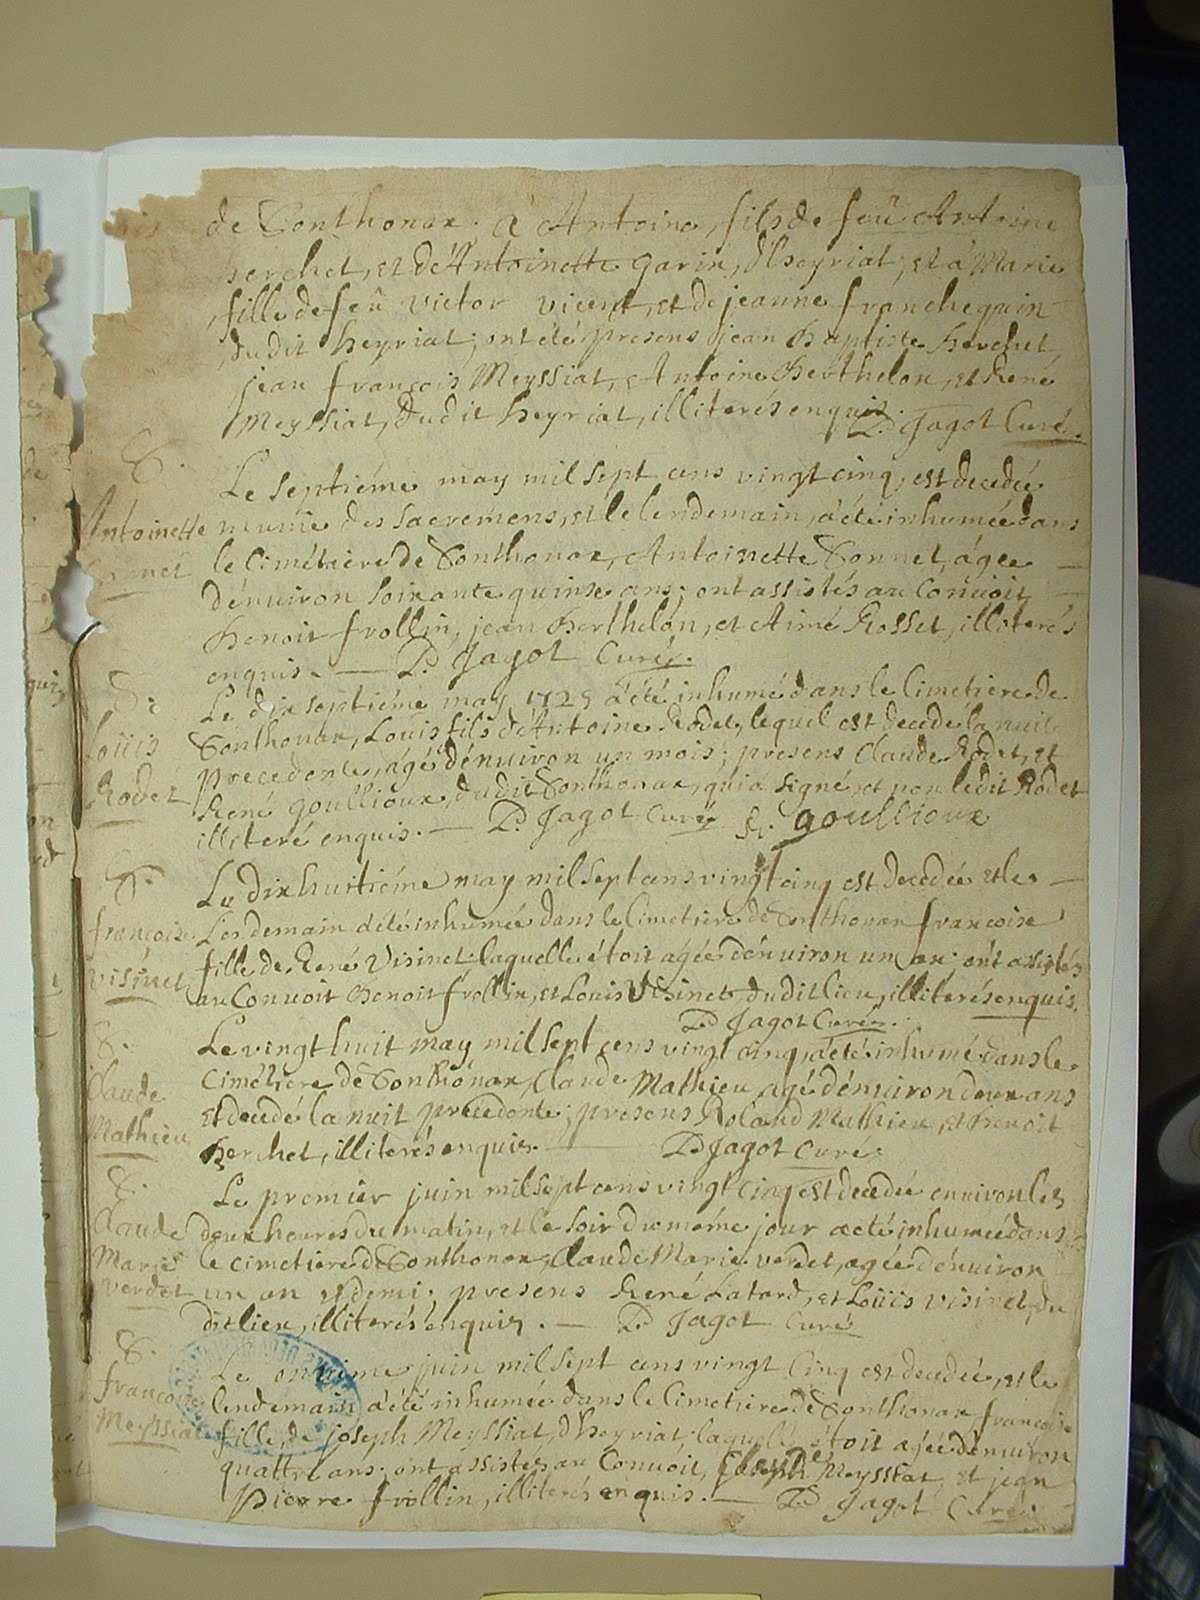 de Sonthonax. à Antoine, fils de feû Antoine
herchet, et d'Antoinette Garin, d'heyriat; et à Marie
fille de feû Victor vicent, et de jeanne franchequin
dudit heyriat; ont été presens jean baptiste herchet,
jean françois Meyssiat, Antoine Berthelon, et René
Meyssiat, dudit heyriat, illiterés enquis. D. Jagot Curé.
S.
Antoinette
Sonnet
Le septiéme may mil sept cens vingt cinq, est decedée
munie des sacremens, et le lendemain, a été inhumée dans
le cimétiere de Sonthonax, Antoinette Sonnet, âgée
d'environ soixante quinse ans; ont assistés au convoit
Benoit frollin, jean Berthelon, et Aimé Rosset, illiterés
enquis. — D. Jagot Curé.
S.
Loüis
Rodet
Le dix septiéme may 1725 a été inhumé dans le Cimetiere de
Sonthonax, Louis fils d'Antoine Rodet, lequel est decedé la nuit
precedente, agé d'environ un mois; presens Claude Rodet, et
René Goullioux, dudit Sonthonax, qui a signé, et non ledit Rodet
illiteré enquis. — D. Jagot Curé R. goullioux
S.
françoise
visinet
Le dixhuitiéme may mil sept cens vingt cinq est decedée et le —
Lendemain a été inhumée dans le Cimetiere de Sonthonax françoise
fille de René Visinet laquelle étoit agée d'environ un an; ont assistés
au Convoit Benoit frollin, et Louis Visinet, dudit lieu, illiterés enquis.
D. Jagot Curé.
S.
Claude
Mathieu
Le vingt huit may mil sept cens vingt cinq, a été inhumé dans le
Cimétiere de Sonthonax, Claude Mathieu, agé d'environ deux ans
et decedé la nuit precedente; presens Roland Mathieu, et Benoit
herchet, illiterés enquis. — D. Jagot Curé.
S.
Claude
Marie
verdet
Le premier juin mil sept cens vingt cinq est decedée environ les
deux heures du matin, et le soir du méme jour a été inhumée dans
le cimetiere de Sonthonax, Claude Marie verdet, agée d'environ
un an et demi; presens René Latard, et Loüis visinet, du
dit lieu, illiterés enquis. — D. Jagot Curé
S.
françoise
Meyssiat
Le onzime juin mil sept cens vingt cinq est decedée, et le
lendemain a été inhumée dans le Cimetiere de Sonthonax françoise
fille de joseph Meyssiat, d'heyriat; laquelle étoit agée d'environ
quattre ans; ont assistés au Convoit, joseph Meyssiat, et jean
Pierre frollin, illiterés enquis. — D. Jagot Curé